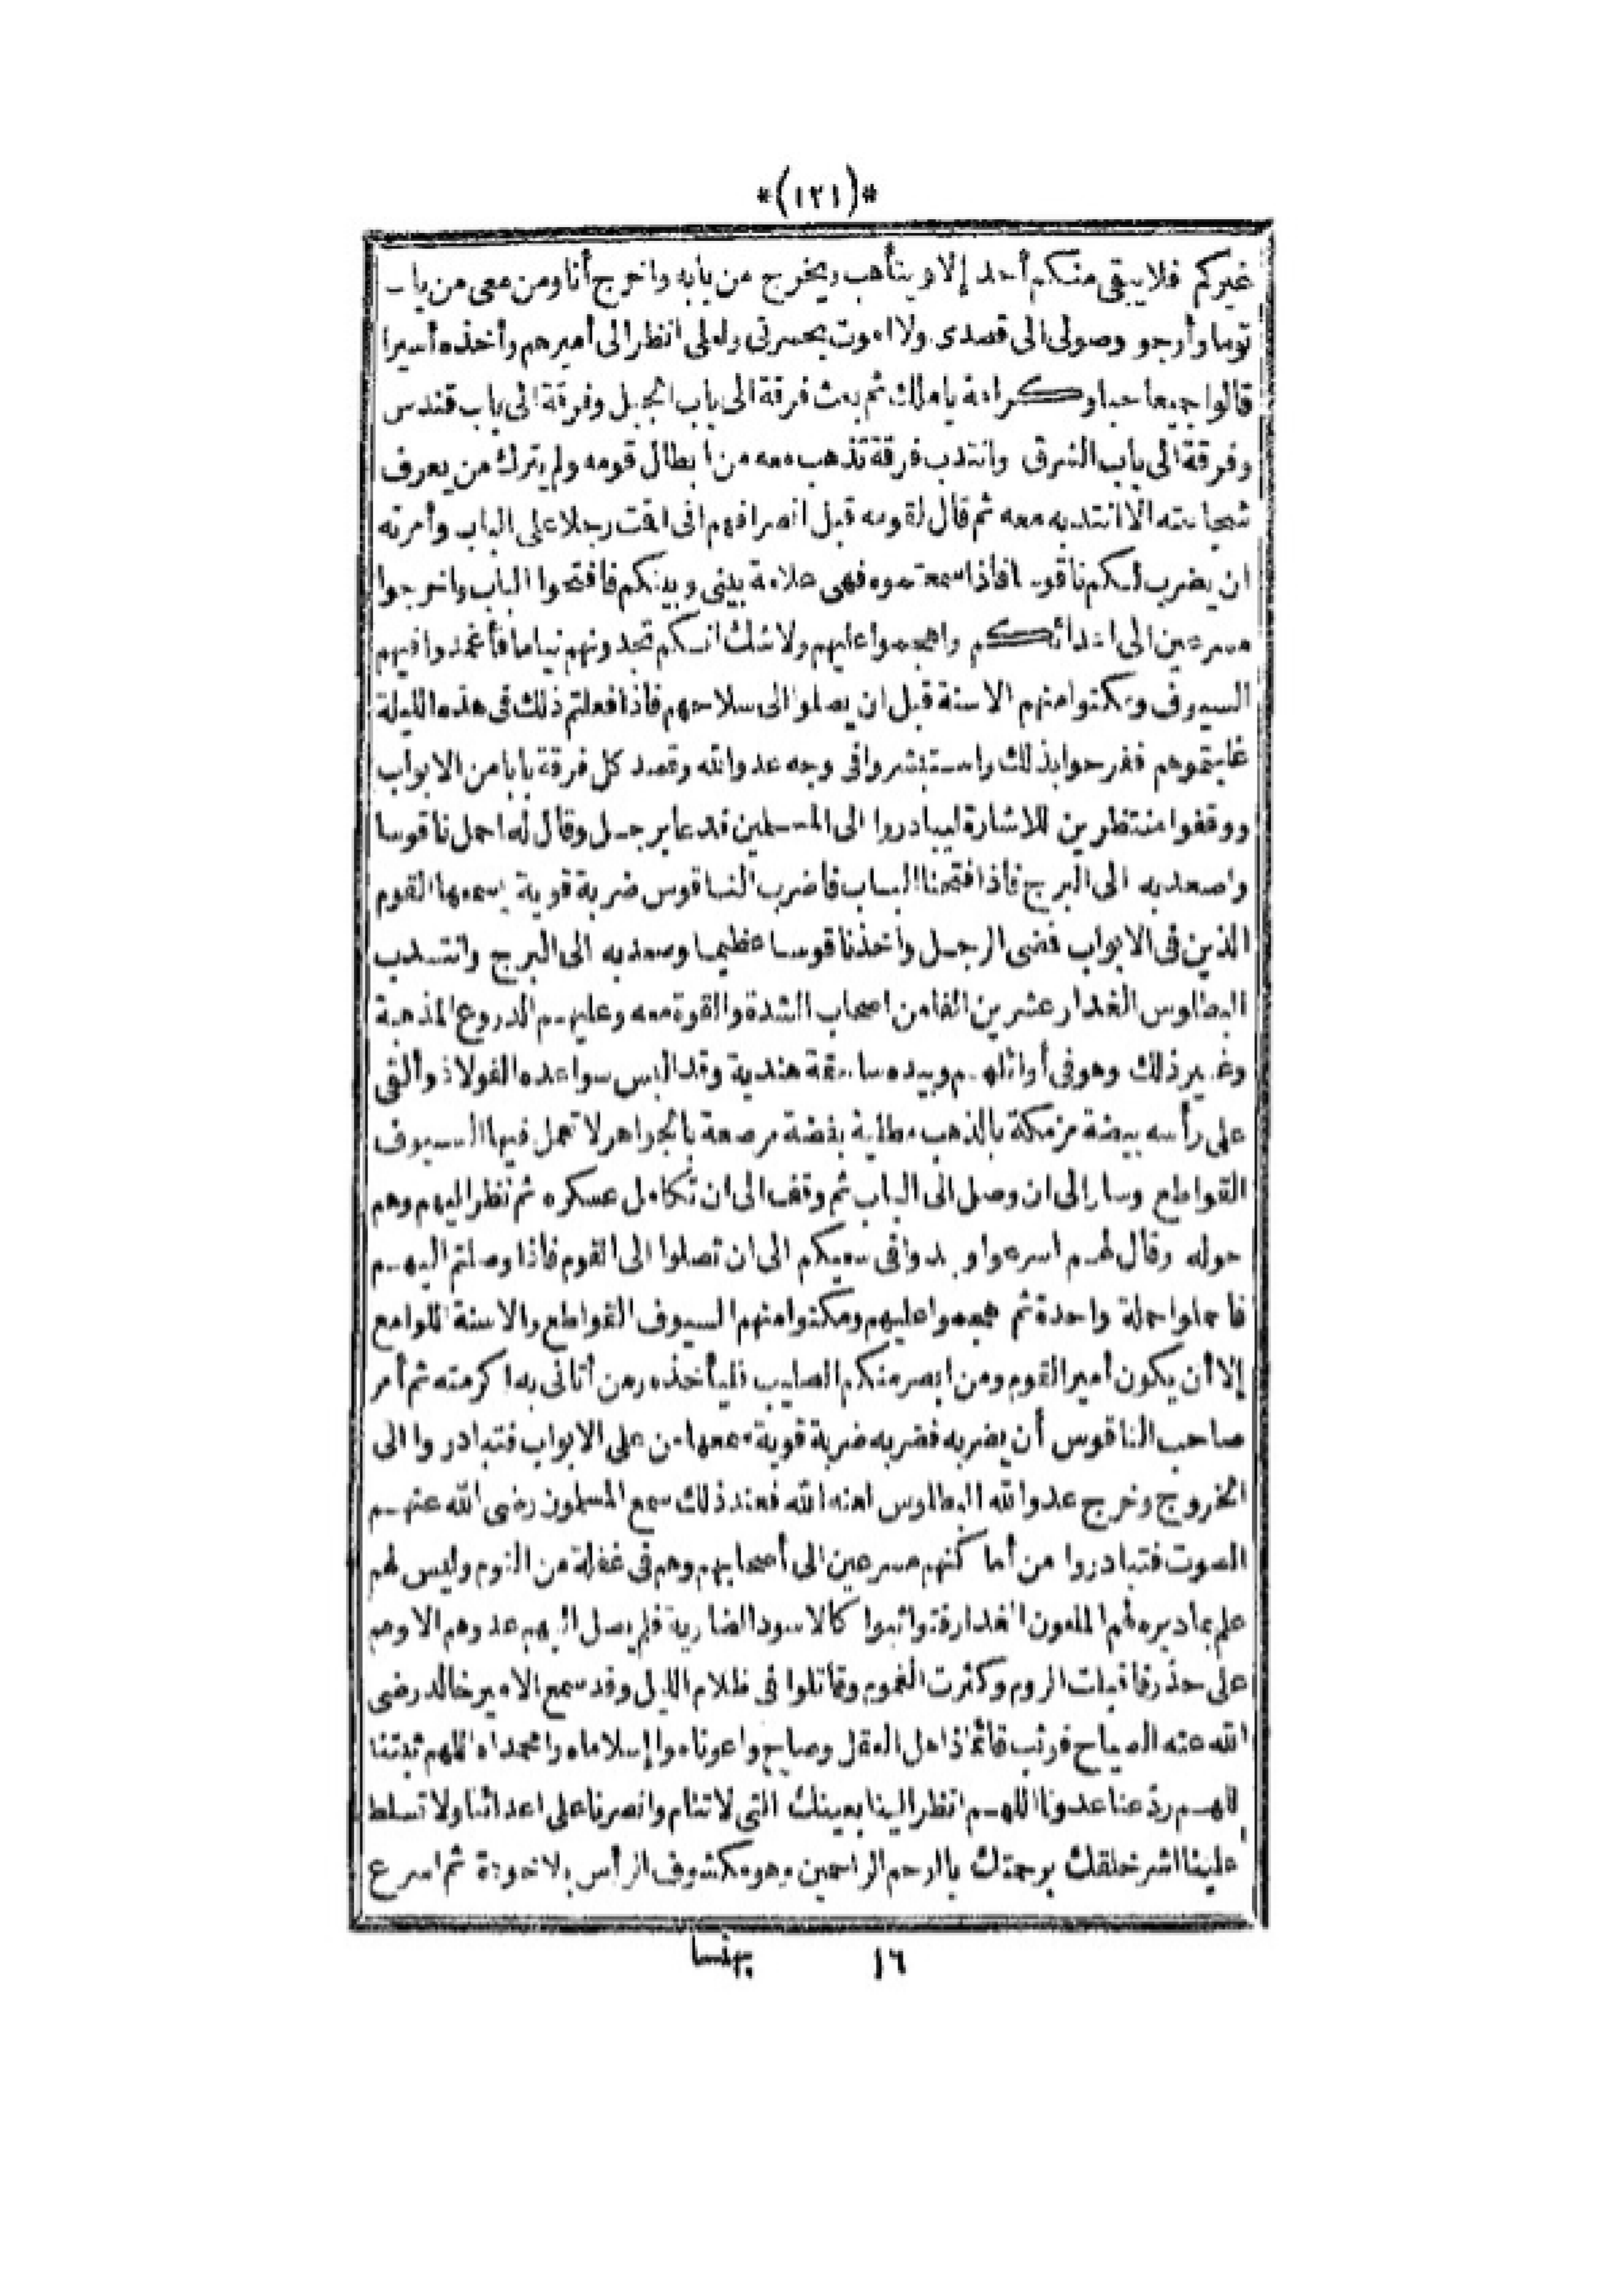 *(١٢١)*
غيركم فلا يبقى منكم أحد إلا ويتأهب ويخرج من بابه واخرج أنا ومن معى من باب
توما وأرجو وصولى الى قصدى ولا اموت بحسرتى ولعلى انظر الى أميرهم وأخذه أسيرا
قالوا جميعا حبا وكرامة يا ملك ثم بعث فرقة الى باب الجبل وفرقة الى باب قندس
وفرقة الى باب الشرقى وانتدب فرقة تذهب معه من ابطال قومه ولم يترك من يعرف
شجاعته الا انتدبه معه ثم قال لقومه قبل انصرافهم انى اقمت رجلا على الباب وأمرته
ان يضرب لكم ناقوسا فاذا سمعتموه فهى علامة بينى وبينكم فافتحوا الباب واخرجوا
مسرعين الى اعدائكم واهجموا عليهم ولا شك انكم تجدونهم نياما فأغمدوا فيهم
السيوف ومكنوا منهم الاسنة قبل ان يصلوا الى سلاحهم فاذا فعلتم ذلك فى هذه الليلة
غلبتموهم ففرحوا بذلك واستبشروا فى وجه عدو الله وقصد كل فرقة بابا من الابواب
ووقفوا منتظرين للاشارة ليبادروا الى المسلمين فدعا برجل وقال له احمل ناقوسا
واصعد به الى البرج فاذا فتحنا الباب فاضرب الناقوس ضربة قوية يسمعها القوم
الذين فى الابواب فمضى الرجل واخذ ناقوسا عظيما وصعد به الى البرج وانتدب
البطلوس الغدار عشرين الفا من اصحاب الشدة والقوة معه وعليهم الدروع المذهبة
وغير ذلك وهو فى أوائلهم وبيده سابقة هندية وقد البس سواعده الفولاذ وألقى
على رأسه بيضة مزمكة بالذهب مطلية بفضة مرصعة بالجواهر لا تعمل فيها السيوف
القواطع وسار إلى ان وصل الى الباب ثم وقف الى ان تكامل عسكره ثم نظر اليهم وهم
حوله وقال لهم اسرعوا وجدوا فى سعيكم الى ان تصلوا الى القوم فاذا وصلتم اليهم
فاحملوا حملة واحدة ثم هجموا عليهم ومكنوا منهم السيوف القواطع والاسنة اللوامع
إلا أن يكون أمير القوم ومن ابصر منكم الصليب فليأخذه ومن أتانى به اكرمته ثم أمر
صاحب الناقوس أن يضربه فضربه ضربة قوية سمعها من على الابواب فتبادروا الى
الخروج وخرج عدو الله البطلوس لعنه الله فعند ذلك سمع المسلمون رضى الله عنهم
الصوت فتبادروا من أماكنهم مسرعين الى أصحابهم وهم فى غفلة من النوم وليس لهم
علم بما دبره لهم الملعون الغدار فتواثبوا كالاسود الضارية فلم يصل اليهم عدوهم الا وهم
على حذر فاقبلت الروم وكثرت الغموم وتقاتلوا فى ظلام الليل وقد سمع الامير خالد رضى
الله عنه الصياح فوثب قائما ذاهل العقل وصاح واعوناه وا إسلاماه وا محمداه اللهم ثبتنا
اللهم ردّ عنا عدونا اللهم انظر الينا بعينك التى لا تنام وانصرنا على اعدائنا ولا تسلط
علينا اشر خلقك برحمتك يا ارحم الراحمين وهو مكشوف الرأس بلا خوذة ثم اسرع
١٦ بهنسا